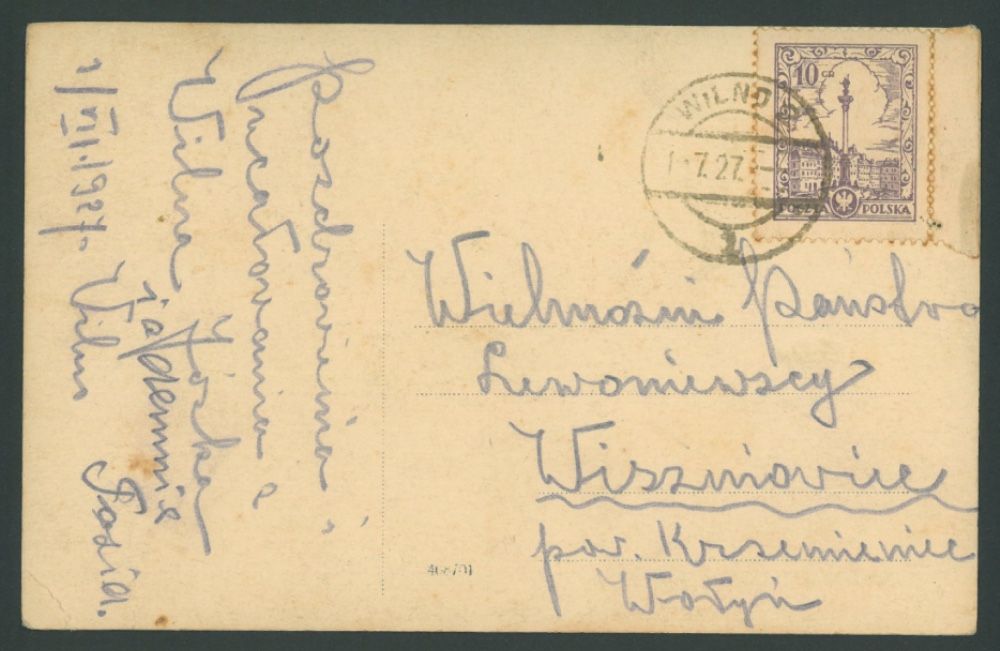 Pozdrowienia i
ucałowania z
Wilna Józka
i odemnie
1/VII.1927. Wilno
WILNO
1
-7.27.
10 GR
POCZTA POLSKA
Wielmożni Państwo
Lewoniewscy
Wiszniowiec
pow. Krzemieniec
Wołyń